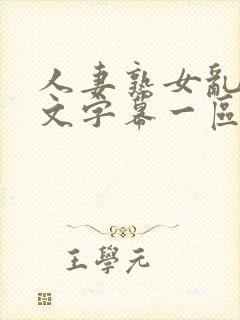 人妻熟女亂
文字幕一區
王學元